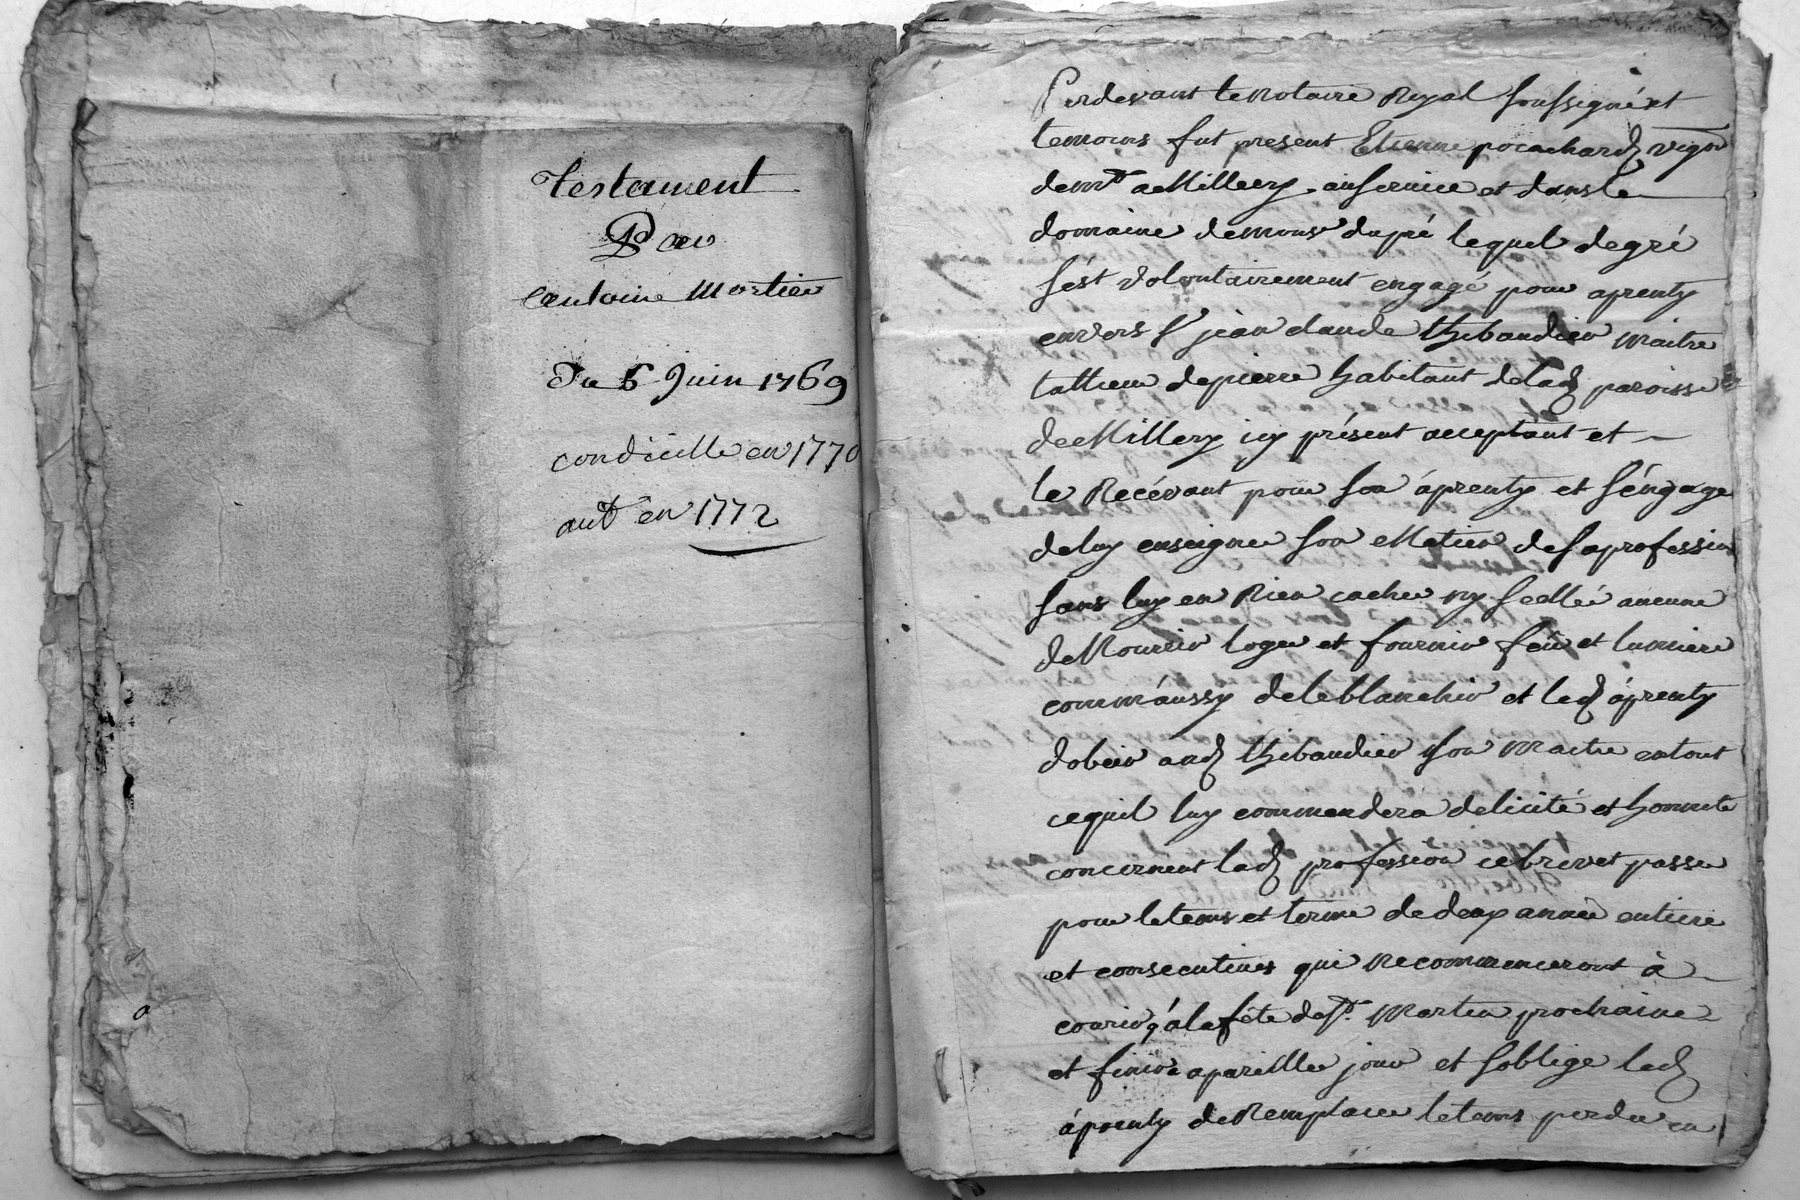 Testament
Par
antoine Mortier
Du 6 Juin 1769
condicille en 1770
aut en 1772
Pardevant le Notaire Royal soussigné et
temoins fut present Etienne pocachard vign
demt a Millery au service et dans le
domaine de monsr dupré lequel de gré
s'est volontairement engagé pour aprenty
envers sr jean claude thibaudier Maitre
tallieur de pierre habitant de lad paroisse
de Millery icy présent acceptant et
le Recévant pour son áprenty et s'éngage
de luy enseigner son Metier de sa profession
sans luy en Rien cacher ny aucune
de Nourrir loger et fournir feu et lumiere
comm'aussy de le blanchir et led áprenty
dobeir aud thibaudier son Maitre en tout
cequil luy commendera de licité et honnete
concernent lad profession ce brevet passer
pour le tems et terme de deux année entiere
et consecutives qui Recommenceront à
courir à la féte de st Martin prochaine
et finir a pareille jour et soblige led
áprenty de Remplacer le tems perdu en